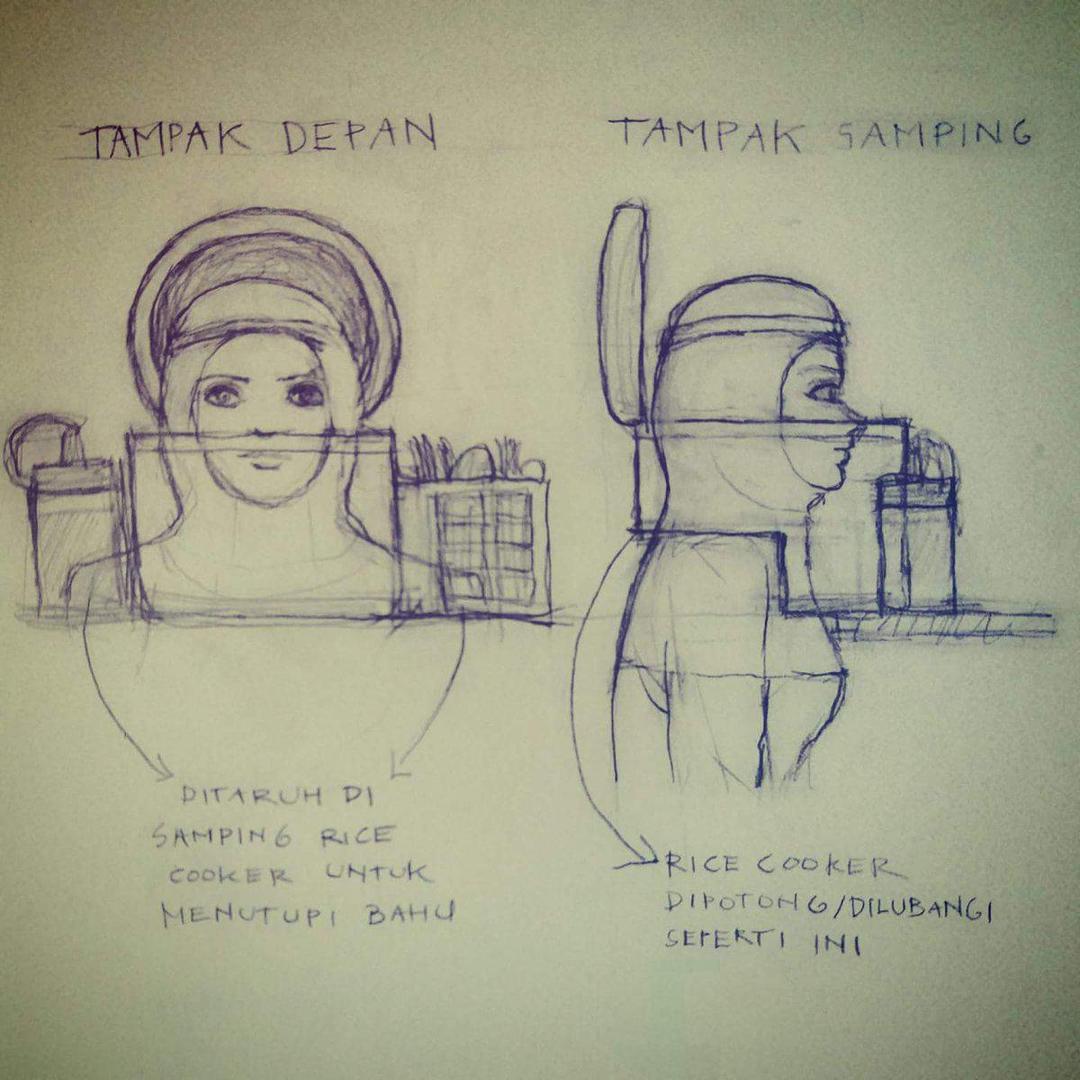 TAMPAK DEPAN
TAMPAK SAMPING
DITARUH DI
SAMPING RICE
COOKER UNTUK
MENUTUPI BAHU
RICE COOKER
DIPOTONG/DILUBANGI
SEPERTI INI